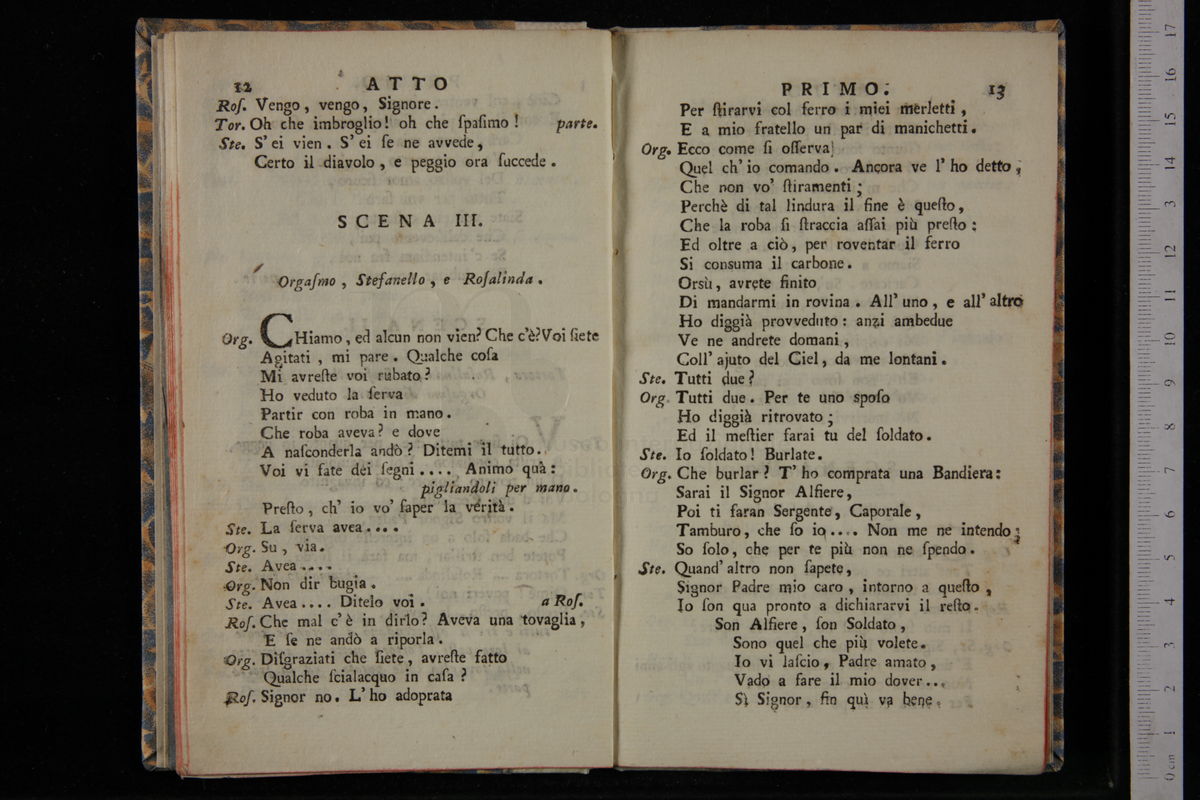 12 ATTO
Roſ. Vengo, vengo, Signore.
Tor. Oh che imbroglio! oh che ſpaſimo! parte.
Ste. S' ei vien. S' ei ſe ne avvede,
Certo il diavolo, e peggio ora ſuccede.
SCENA III.
Orgaſmo, Stefanello, e Roſalinda.
Org. CHiamo, ed alcun non vien? Che c'è? Voi ſiete
Agitati, mi pare. Qualche coſa
Mi avreſte voi rubato?
Ho veduto la ſerva
Partir con roba in mano.
Che roba aveva? e dove
A naſconderla andò? Ditemi il tutto.
Voi vi fate dei ſegni.... Animo quà:
pigliandoli per mano.
Preſto, ch' io vo' ſaper la verità.
Ste. La ſerva avea....
Org. Su, via.
Ste. Avea....
Org. Non dir bugia.
Ste. Avea.... Ditelo voi. a Roſ.
Roſ. Che mal c'è in dirlo? Aveva una tovaglia,
E ſe ne andò a riporla.
Org. Diſgraziati che ſiete, avreſte fatto
Qualche ſcialacquo in caſa?
Roſ. Signor no. L' ho adoprata
PRIMO. 13
Per ſtirarvi col ferro i miei merletti,
E a mio fratello un par di manichetti.
Org. Ecco come ſi oſſerva
Quel ch' io comando. Ancora ve l' ho detto,
Che non vo' ſtiramenti;
Perchè di tal lindura il fine è queſto,
Che la roba ſi ſtraccia aſſai più preſto:
Ed oltre a ciò, per roventar il ferro
Si consuma il carbone.
Orsù, avrete finito
Di mandarmi in rovina. All' uno, e all' altro
Ho diggià provveduto: anzi ambedue
Ve ne andrete domani,
Coll' ajuto del Ciel, da me lontani.
Ste. Tutti due?
Org. Tutti due. Per te uno spoſo
Ho diggià ritrovato;
Ed il meſtier farai tu del ſoldato.
Ste. Io ſoldato! Burlate.
Org. Che burlar? T' ho comprata una Bandiera:
Sarai il Signor Alfiere,
Poi ti faran Sergente, Caporale,
Tamburo, che ſo io.... Non me ne intendo;
So ſolo, che per te più non ne ſpendo.
Ste. Quand' altro non ſapete,
Signor Padre mio caro, intorno a queſto,
Io ſon qua pronto a dichiararvi il reſto.
Son Alfiere, ſon Soldato,
Sono quel che più volete.
Io vi laſcio, Padre amato,
Vado a fare il mio dover...
Sì Signor, fin quì va bene.